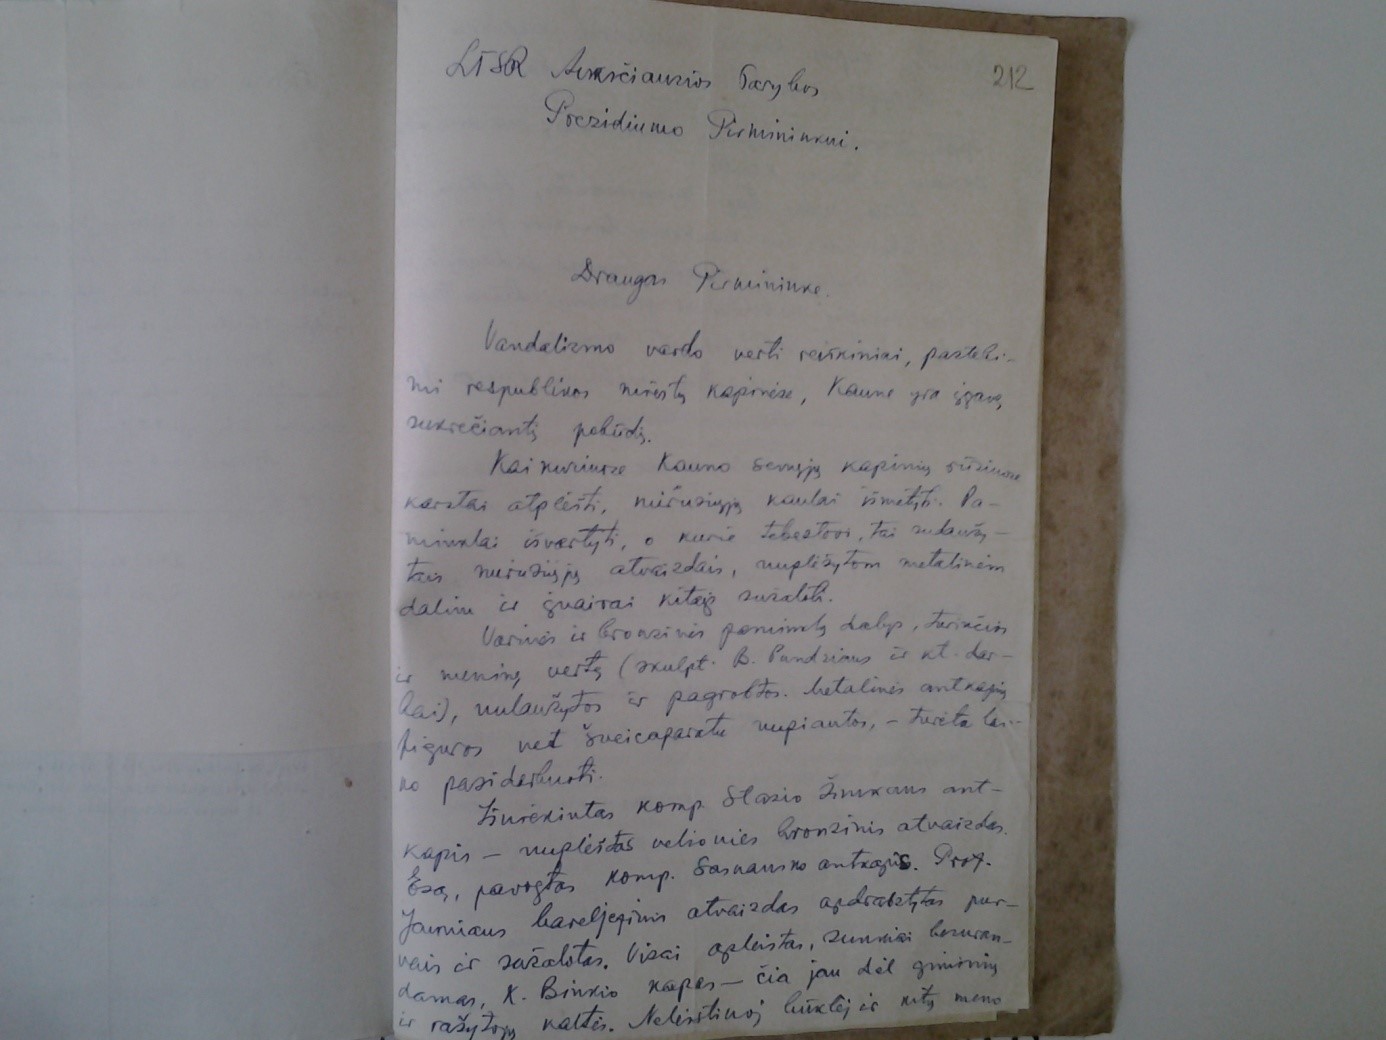 LTSR Aukščiausios Tarybos
212
Prezidiumo Pirmininkui.
Draugas Pirmininke.
Vandalizmo vardo verti reiškiniai, pastebi-
mi respublikos miestų kapinėse, Kaune yra įgavę
sukrečiantį pobūdį.
Kai kuriuose Kauno senųjų kapinių rūsiuose
karstai atplėšti, mirusiųjų kaulai išmėtyti. Pa-
minklai išvartyti, o kurie tebestovi, tai sudaužy-
tais mirusiųjų atvaizdais, nuplėšytom metalinėm
dalim ir įvairai kitaip sužaloti.
Varinės ir bronzinės paminklų dalys, turinčios
ir meninę vertę (skulpt. B. Pundziaus ir kt. dar-
bai), nulaužytos ir pagrobtos. Metalinės antkapių
figuros net šveicaparatu nupiautos, – turėta lai-
ko pasidarbuoti.
Išniekintas komp. Stasio Šimkaus ant-
kapis – nuplėštas velionies bronzinis atvaizdas.
Esą, pavogtas komp. Sasnausko antkapis. Prof.
Jauniaus bareljefinis atvaizdas apdrabstytas pur-
vais ir sužalotas. Visai apleistas, sunkiai besuran-
damas, K. Binkio kapas – čia jau dėl giminių
ir rašytojų kaltės. Neleistinoj būklėj ir kitų meno